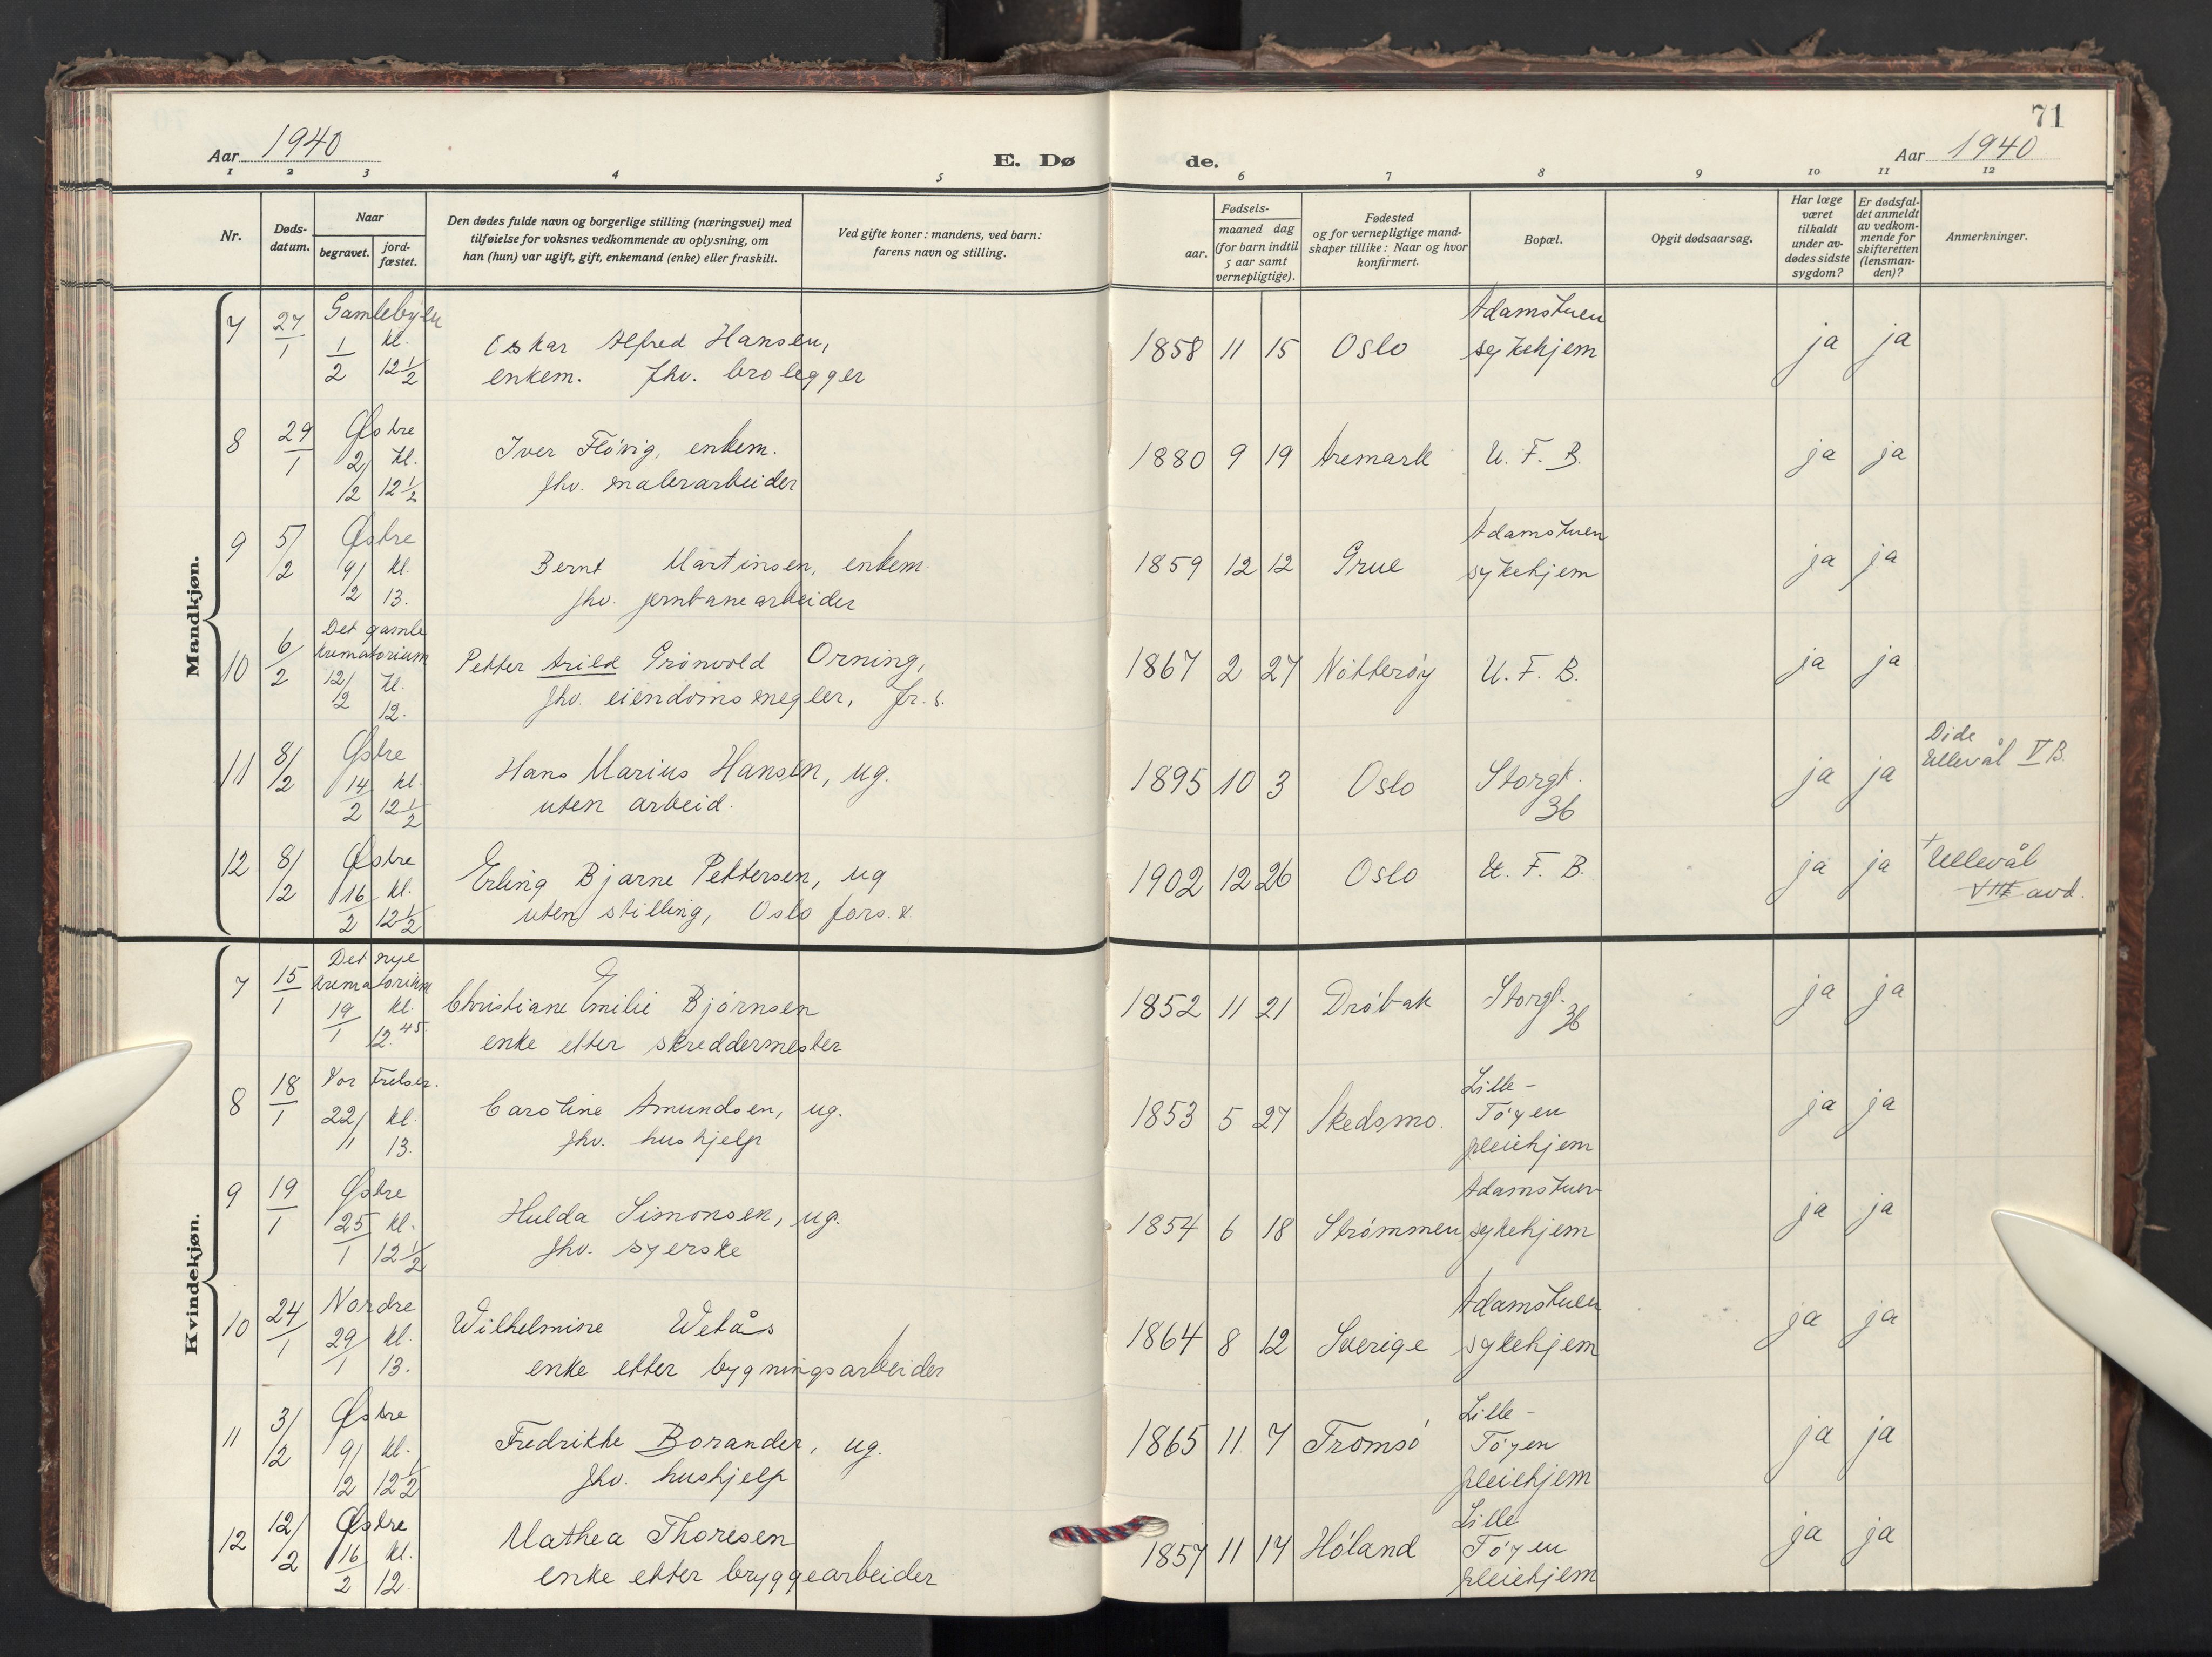 71
Aar 1940
E. Dø
de.
Aar 1940
1 2 3 4 5 6 7 8 9 10 11 12
Nr.
Døds-
datum.
Naar
begravet.
jord-
fæstet.
Den dødes fulde navn og borgerlige stilling (næringsvei) med
tilføielse for voksnes vedkommende av oplysning, om
han (hun) var ugift, gift, enkemand (enke) eller fraskilt.
Ved gifte koner: mandens, ved barn:
farens navn og stilling.
Fødsels-
aar.
maaned dag
(for barn indtil
5 aar samt
vernepligtige).
Fødested
og for vernepligtige mand-
skaper tillike: Naar og hvor
konfirmert.
Bopæl.
Opgit dødsaarsag.
Har læge
været
tilkaldt
under av-
dødes sidste
sygdom?
Er dødsfal-
det anmeldt
av vedkom-
mende for
skifteretten
(lensman-
den)?
Anmerkninger.
Mandkjøn.
7 27/1 Gamlebyen
1/2 kl. 12 1/2
Oskar Alfred Hansen,
enkem. fhv. brolegger
1858 11 15 Oslo
Adamstuen
sykehjem
ja ja
8 29/1 Østre
2/2 kl. 12 1/2
Iver Flövig, enkem.
fhv. malerarbeider
1880 9 19 Aremark U. F. B. ja ja
9 5/2 Østre
9/2 kl. 13.
Bernt Martinsen, enkem.
fhv. jernbanearbeider
1859 12 12 Grue
Adamstuen
sykehjem
ja ja
10 6/2 Det gamle
krematorium
12/2 kl. 12.
Petter Arild Grönvold Orning,
fhv. eiendomsmegler, fr. s.
1867 2 27 Nötteröy U. F. B. ja ja
11 8/2 Østre
14/2 kl. 12 1/2
Hans Marius Hansen, ug.
uten arbeid.
1895 10 3 Oslo
Storgt.
36
ja ja
Döde
Ullevål V B.
12 8/2 Østre
16/2 kl. 12 1/2
Erling Bjarne Pettersen, ug
uten stilling, Oslo fors.
1902 12 26 Oslo U. F. B. ja ja
+ Ullevål
VIII avd.
Kvindekjøn.
7 15/1 Det nye
krematorium
19/1 kl. 12.45
Christiane Emilie Björnsen
enke etter skreddermester
1852 11 21 Dröbak
Storgt.
36
ja ja
8 18/1 Vor Frelser.
22/1 kl. 13.
Caroline Amundsen, ug.
fhv. hushjelp
1853 5 27 Skedsmo.
Lille-
Töyen
pleiehjem
ja ja
9 19/1 Østre
25/1 kl. 12 1/2
Hulda Simonsen, ug.
fhv. syerske
1854 6 18 Strömmen
Adamstuen
sykehjem
ja ja
10 24/1 Nordre
29/1 kl. 13.
Wilhelmine Wetås
enke etter bygningsarbeider
1864 8 12 Sverige
Adamstuen
sykehjem
ja ja
11 3/2 Østre
9/2 kl. 12 1/2
Fredrikke Borander, ug.
fhv. hushjelp
1865 11 7 Tromsö
Lille-
Töyen
pleiehjem
ja ja
12 12/2 Østre
16/2 kl. 12.
Mathea Thoresen
enke etter bryggearbeider
1857 11 17 Höland
Lille
Töyen
pleiehjem
ja ja